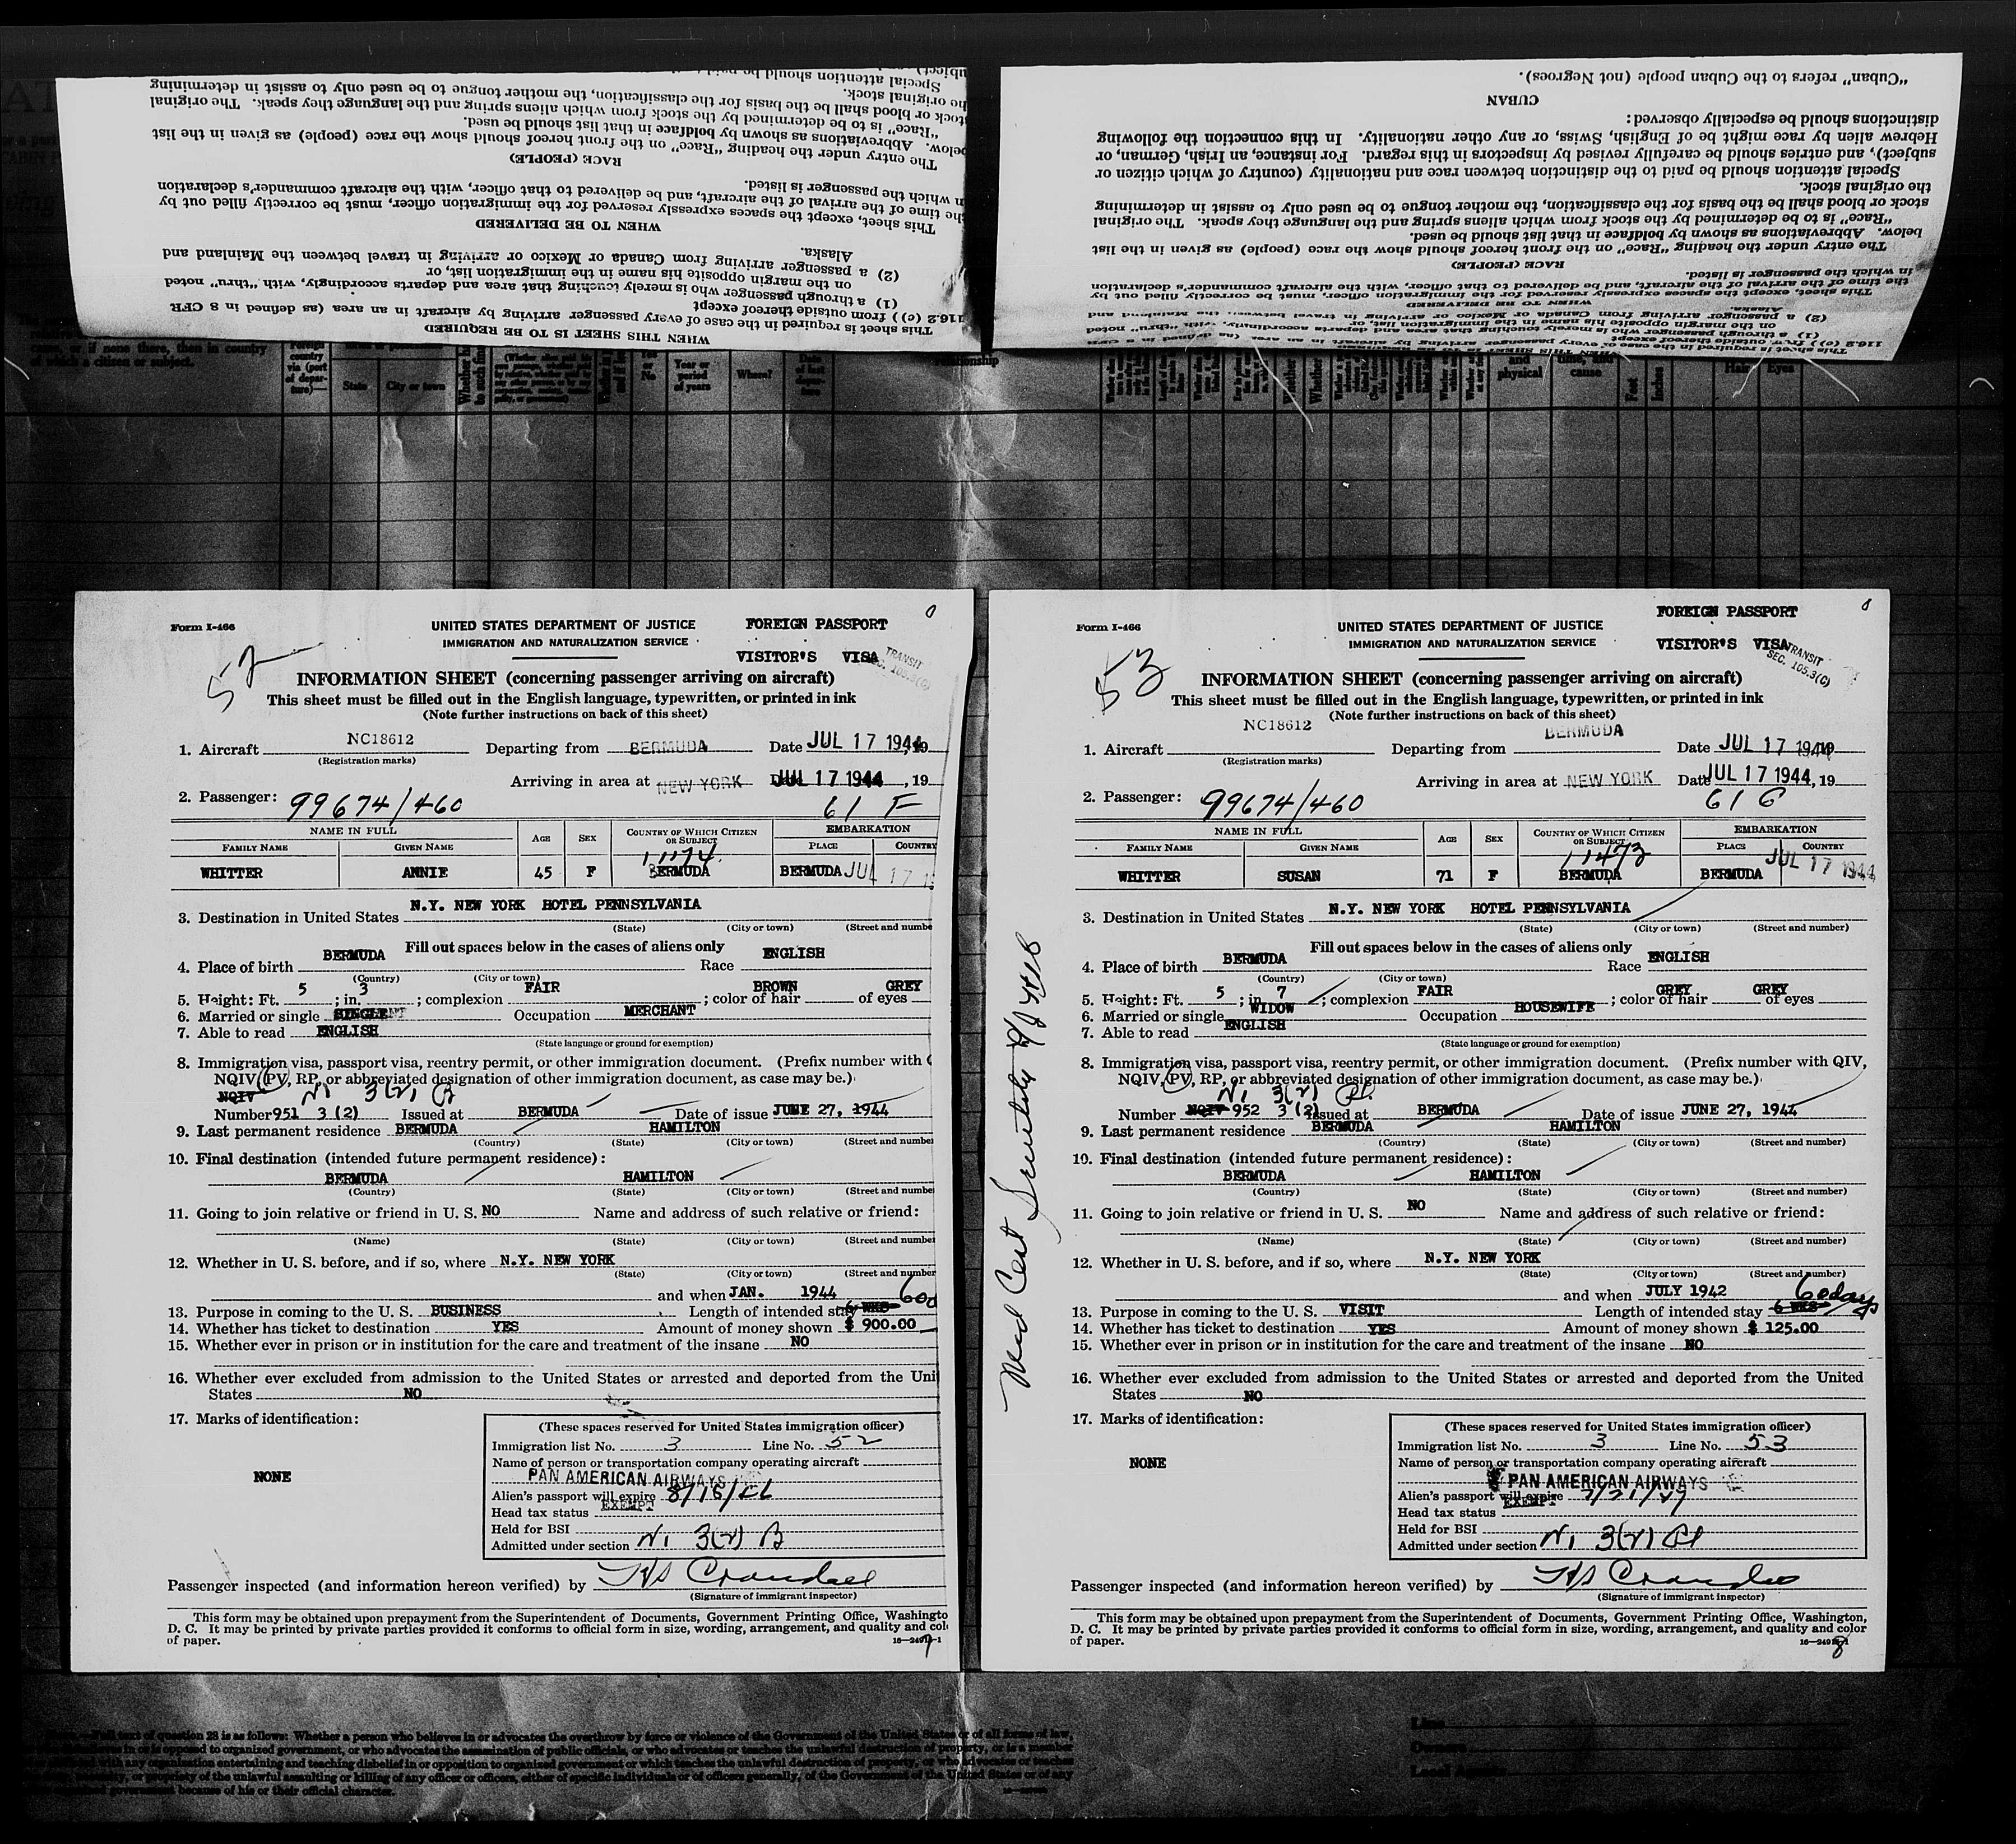 subject)
Special attention should be paid
the original stock.
stock or blood shall be the basis for the classification, the mother tongue to be used only to assist in determining
"Race" is to be determined by the stock from which aliens spring and the language they speak. The original
below. Abbreviations as shown by boldface in that list should be used.
The entry under the heading "Race" on the front hereof should show the race (people) as given in the list
RACE (PEOPLE)
in which the passenger is listed.
the time of the arrival of the aircraft, and be delivered to that officer, with the aircraft commander's declaration
This sheet, except the spaces expressly reserved for the immigration officer, must be correctly filled out by
WHEN TO BE DELIVERED
Alaska.
(2) a passenger arriving from Canada or Mexico or arriving in travel between the Mainland and
on the margin opposite his name in the immigration list, or
(1) a through passenger who is merely touching that area and departs accordingly, with "thru" noted
116.2 (c)) from outside thereof except
This sheet is required in the case of every passenger arriving by aircraft in an area (as defined in 8 CFR
WHEN THIS SHEET IS TO BE REQUIRED
"Cuban" refers to the Cuban people (not Negroes).
CUBAN
distinctions should be especially observed:
Hebrew alien by race might be of English, Swiss, or any other nationality. In this connection the following
subject), and entries should be carefully revised by inspectors in this regard. For instance, an Irish, German, or
Special attention should be paid to the distinction between race and nationality (country of which citizen or
the original stock.
stock or blood shall be the basis for the classification, the mother tongue to be used only to assist in determining
"Race" is to be determined by the stock from which aliens spring and the language they speak. The original
below. Abbreviations as shown by boldface in that list should be used.
The entry under the heading "Race" on the front hereof should show the race (people) as given in the list
RACE (PEOPLE)
in which the passenger is listed.
the time of the arrival of the aircraft, and be delivered to that officer, with the aircraft commander's declaration
This sheet, except the spaces expressly reserved for the immigration officer, must be correctly filled out by
WHEN TO BE DELIVERED
Alaska.
(2) a passenger arriving from Canada or Mexico or arriving in travel between the Mainland and
on the margin opposite his name in the immigration list, or
(1) a through passenger who is merely touching that area and departs accordingly, with "thru" noted
116.2 (c)) from outside thereof except
This sheet is required in the case of every passenger arriving by aircraft in an area (as defined in 8 CFR
WHEN THIS SHEET IS TO BE REQUIRED
if none there, then in country
of which a citizen or subject.
State City or town
No
Year or period of years
Where?
relationship
and physical
time, and cause
Feet
Inches
Hair Eyes
Form I-466
UNITED STATES DEPARTMENT OF JUSTICE FOREIGN PASSPORT
IMMIGRATION AND NATURALIZATION SERVICE
VISITOR'S VISA
TRANSIT
SEC. 105.3(C)
52
INFORMATION SHEET (concerning passenger arriving on aircraft)
This sheet must be filled out in the English language, typewritten, or printed in ink
(Note further instructions on back of this sheet)
1. Aircraft NC18612 Departing from BERMUDA Date JUL 17 1944, 19
(Registration marks)
Arriving in area at NEW YORK Date JUL 17 1944, 19
2. Passenger: 99674/460 61 F
NAME IN FULL AGE SEX COUNTRY OF WHICH CITIZEN OR SUBJECT EMBARKATION
FAMILY NAME GIVEN NAME PLACE COUNTRY
WHITTER ANNIE 45 F BERMUDA BERMUDA JUL 17 1
3. Destination in United States N.Y. NEW YORK HOTEL PENNSYLVANIA
(State) (City or town) (Street and numbe
Fill out spaces below in the cases of aliens only
4. Place of birth BERMUDA Race ENGLISH
(Country) (City or town)
5. Height: Ft. 5; in. 3; complexion FAIR; color of hair BROWN of eyes GREY
6. Married or single SINGLE Occupation MERCHANT
7. Able to read ENGLISH
(State language or ground for exemption)
8. Immigration visa, passport visa, reentry permit, or other immigration document. (Prefix number with
NQIV, PV, RP, or abbreviated designation of other immigration document, as case may be.)
NQIV 3(2)
Number 951 3 (2) Issued at BERMUDA Date of issue JUNE 27, 1944
9. Last permanent residence BERMUDA HAMILTON
(Country) (State) (City or town) (Street and number
10. Final destination (intended future permanent residence):
BERMUDA HAMILTON
(Country) (State) (City or town) (Street and number
11. Going to join relative or friend in U. S. NO Name and address of such relative or friend:
(Name) (State) (City or town) (Street and number
12. Whether in U. S. before, and if so, where N.Y. NEW YORK
(State) (City or town) (Street and number
and when JAN. 1944
13. Purpose in coming to the U. S. BUSINESS Length of intended stay 6 WKS 60d
14. Whether has ticket to destination YES Amount of money shown $ 900.00
15. Whether ever in prison or in institution for the care and treatment of the insane NO
16. Whether ever excluded from admission to the United States or arrested and deported from the Uni
States NO
17. Marks of identification:
NONE
(These spaces reserved for United States immigration officer)
Immigration list No. 3 Line No. 52
Name of person or transportation company operating aircraft
PAN AMERICAN AIRWAYS
Alien's passport will expire
Head tax status EXEMPT
Held for BSI
Admitted under section 3(2)
Passenger inspected (and information hereon verified) by
(Signature of immigrant inspector)
This form may be obtained upon prepayment from the Superintendent of Documents, Government Printing Office, Washingto
D. C. It may be printed by private parties provided it conforms to official form in size, wording, arrangement, and quality and col
of paper.
Form I-466
UNITED STATES DEPARTMENT OF JUSTICE
FOREIGN PASSPORT
IMMIGRATION AND NATURALIZATION SERVICE
VISITOR'S VISA
TRANSIT
SEC. 105.3(C)
53
INFORMATION SHEET (concerning passenger arriving on aircraft)
This sheet must be filled out in the English language, typewritten, or printed in ink
(Note further instructions on back of this sheet)
1. Aircraft NC18612 Departing from BERMUDA Date JUL 17 1944 19
(Registration marks)
Arriving in area at NEW YORK Date JUL 17 1944, 19
2. Passenger: 99674/460 61 G
NAME IN FULL AGE SEX COUNTRY OF WHICH CITIZEN OR SUBJECT EMBARKATION
FAMILY NAME GIVEN NAME PLACE COUNTRY
11473
WHITTER SUSAN 71 F BERMUDA BERMUDA JUL 17 1944
3. Destination in United States N.Y. NEW YORK HOTEL PENNSYLVANIA
(State) (City or town) (Street and number)
Fill out spaces below in the cases of aliens only
4. Place of birth BERMUDA Race ENGLISH
(Country) (City or town)
5. Height: Ft. 5; in. 7; complexion FAIR; color of hair GREY of eyes GREY
6. Married or single WIDOW Occupation HOUSEWIFE
7. Able to read ENGLISH
(State language or ground for exemption)
8. Immigration visa, passport visa, reentry permit, or other immigration document. (Prefix number with QIV,
NQIV, PV, RP, or abbreviated designation of other immigration document, as case may be.)
3(2)
Number NQIV 952 3 (2) Issued at BERMUDA Date of issue JUNE 27, 1944
9. Last permanent residence BERMUDA HAMILTON
(Country) (State) (City or town) (Street and number)
10. Final destination (intended future permanent residence):
BERMUDA HAMILTON
(Country) (State) (City or town) (Street and number)
11. Going to join relative or friend in U. S. NO Name and address of such relative or friend:
(Name) (State) (City or town) (Street and number)
12. Whether in U. S. before, and if so, where N.Y. NEW YORK
(State) (City or town) (Street and number)
and when JULY 1942
13. Purpose in coming to the U. S. VISIT Length of intended stay 6 WKS 60 days
14. Whether has ticket to destination YES Amount of money shown $ 125.00
15. Whether ever in prison or in institution for the care and treatment of the insane NO
16. Whether ever excluded from admission to the United States or arrested and deported from the United
States NO
17. Marks of identification:
NONE
(These spaces reserved for United States immigration officer)
Immigration list No. 3 Line No. 53
Name of person or transportation company operating aircraft
PAN AMERICAN AIRWAYS
Alien's passport will expire
Head tax status EXEMPT
Held for BSI
Admitted under section 3(2)
Passenger inspected (and information hereon verified) by
(Signature of immigrant inspector)
This form may be obtained upon prepayment from the Superintendent of Documents, Government Printing Office, Washington,
D. C. It may be printed by private parties provided it conforms to official form in size, wording, arrangement, and quality and color
of paper.
Med Cert Senility
text of question 28 is as follows: Whether a person who believes in or advocates the overthrow by force or violence of the Government of the United States or of all forms of law,
or is opposed to organized government, or who advocates the assassination of public officials, or who advocates or teaches the unlawful destruction of property, or is a member
any organization entertaining and teaching disbelief in or opposition to organized government or which teaches the unlawful destruction of property, or who advocates or teaches
or propriety of the unlawful assaulting or killing of any officer or officers, either of specific individuals or of officers generally, of the Government of the United States or of any
government because of his or their official character.